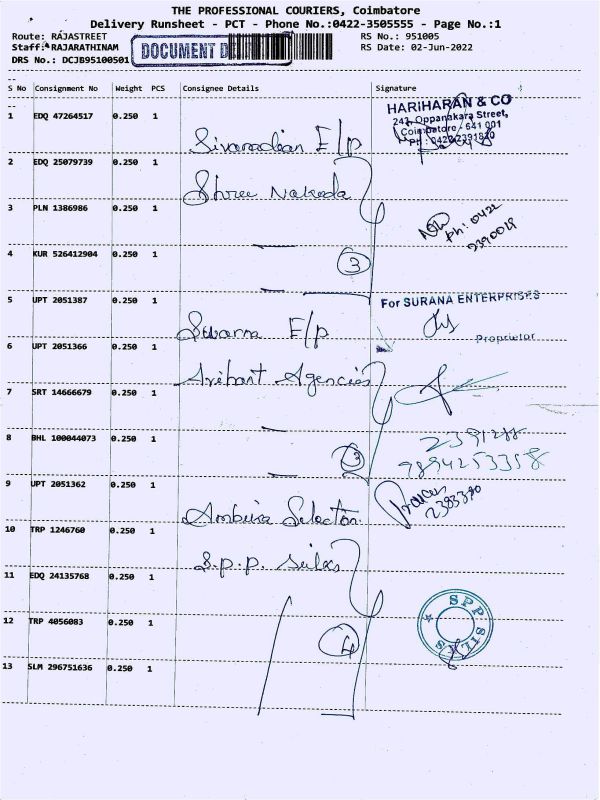 THE PROFESSIONAL COURIERS, Coimbatore
Delivery Runsheet - PCT - Phone No.:0422-3505555 - Page No.:1
Route: RAJASTREET RS No.: 951005
Staff: RAJARATHINAM DOCUMENT RS Date: 02-Jun-2022
DRS No.: DCJB95100501
S No Consignment No Weight PCS Consignee Details Signature
1 EDQ 47264517 0.250 1
HARIHARAN & CO
242, Oppanakara Street,
Coimbatore - 641 001
Ph : 0422-2391820
E/p
2 EDQ 25079739 0.250 1
Shree Nakoda
3 PLN 1386986 0.250 1
Ph: 0422
4 KUR 526412904 0.250 1
3
5 UPT 2051387 0.250 1
For SURANA ENTERPRISES
Proprietor
Swarna E/p
6 UPT 2051366 0.250 1
Arihant Agencies
7 SRT 14666679 0.250 1
8 BHL 100044073 0.250 1
2391288
9894253358
3
9 UPT 2051362 0.250 1
Ambica Selection
10 TRP 1246760 0.250 1
S.p.p. Silks
11 EDQ 24135768 0.250 1
12 TRP 4056083 0.250 1
SPP SILKS
4
13 SLM 296751636 0.250 1